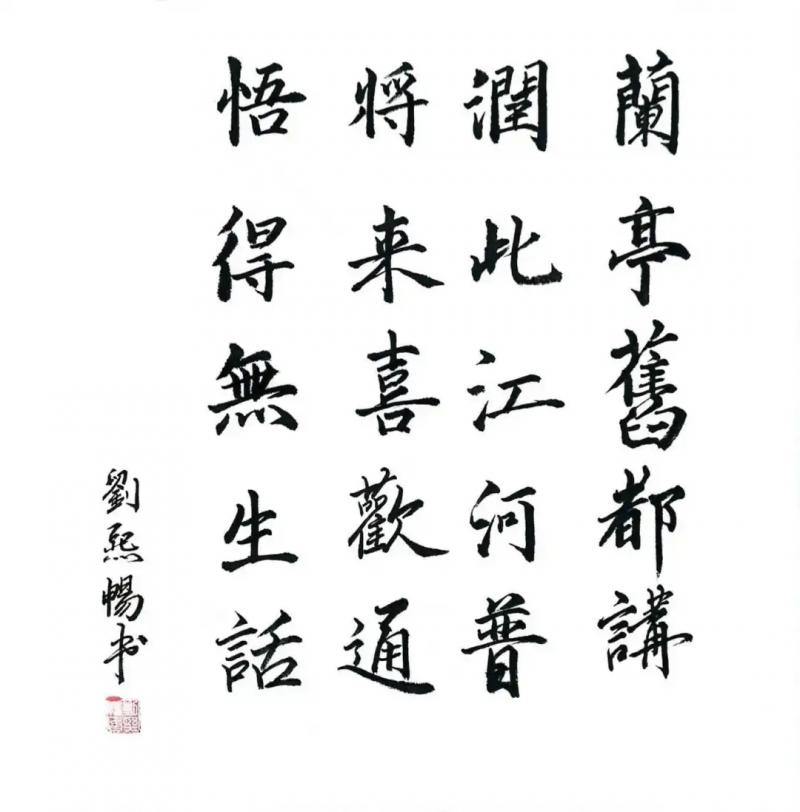 蘭亭舊都講
潤此江河普
將来喜歡通
悟得無生話
劉熙暢书